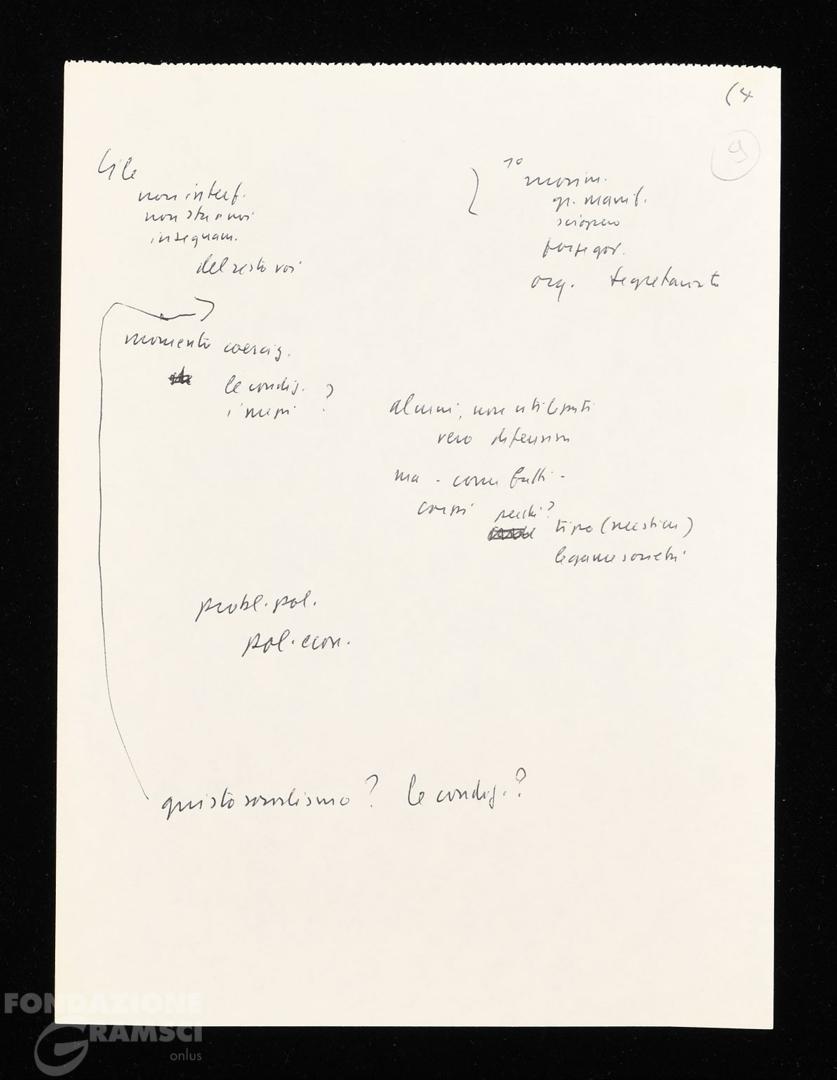 (4
9
Cile
non interf.
non
insegnam.
del resto voi
1°
movim.
gr. manif.
sciopero
org. segretariato
momento coerciz.
le condiz. ?
i mezzi
alcuni, non utilizzati
vero difensori
ma - come tutti -
corpi perché?
tipo (mestiere)
legame società
probl. pol.
pol. econ.
questo socialismo? le condiz.?
FONDAZIONE
GRAMSCI
onlus